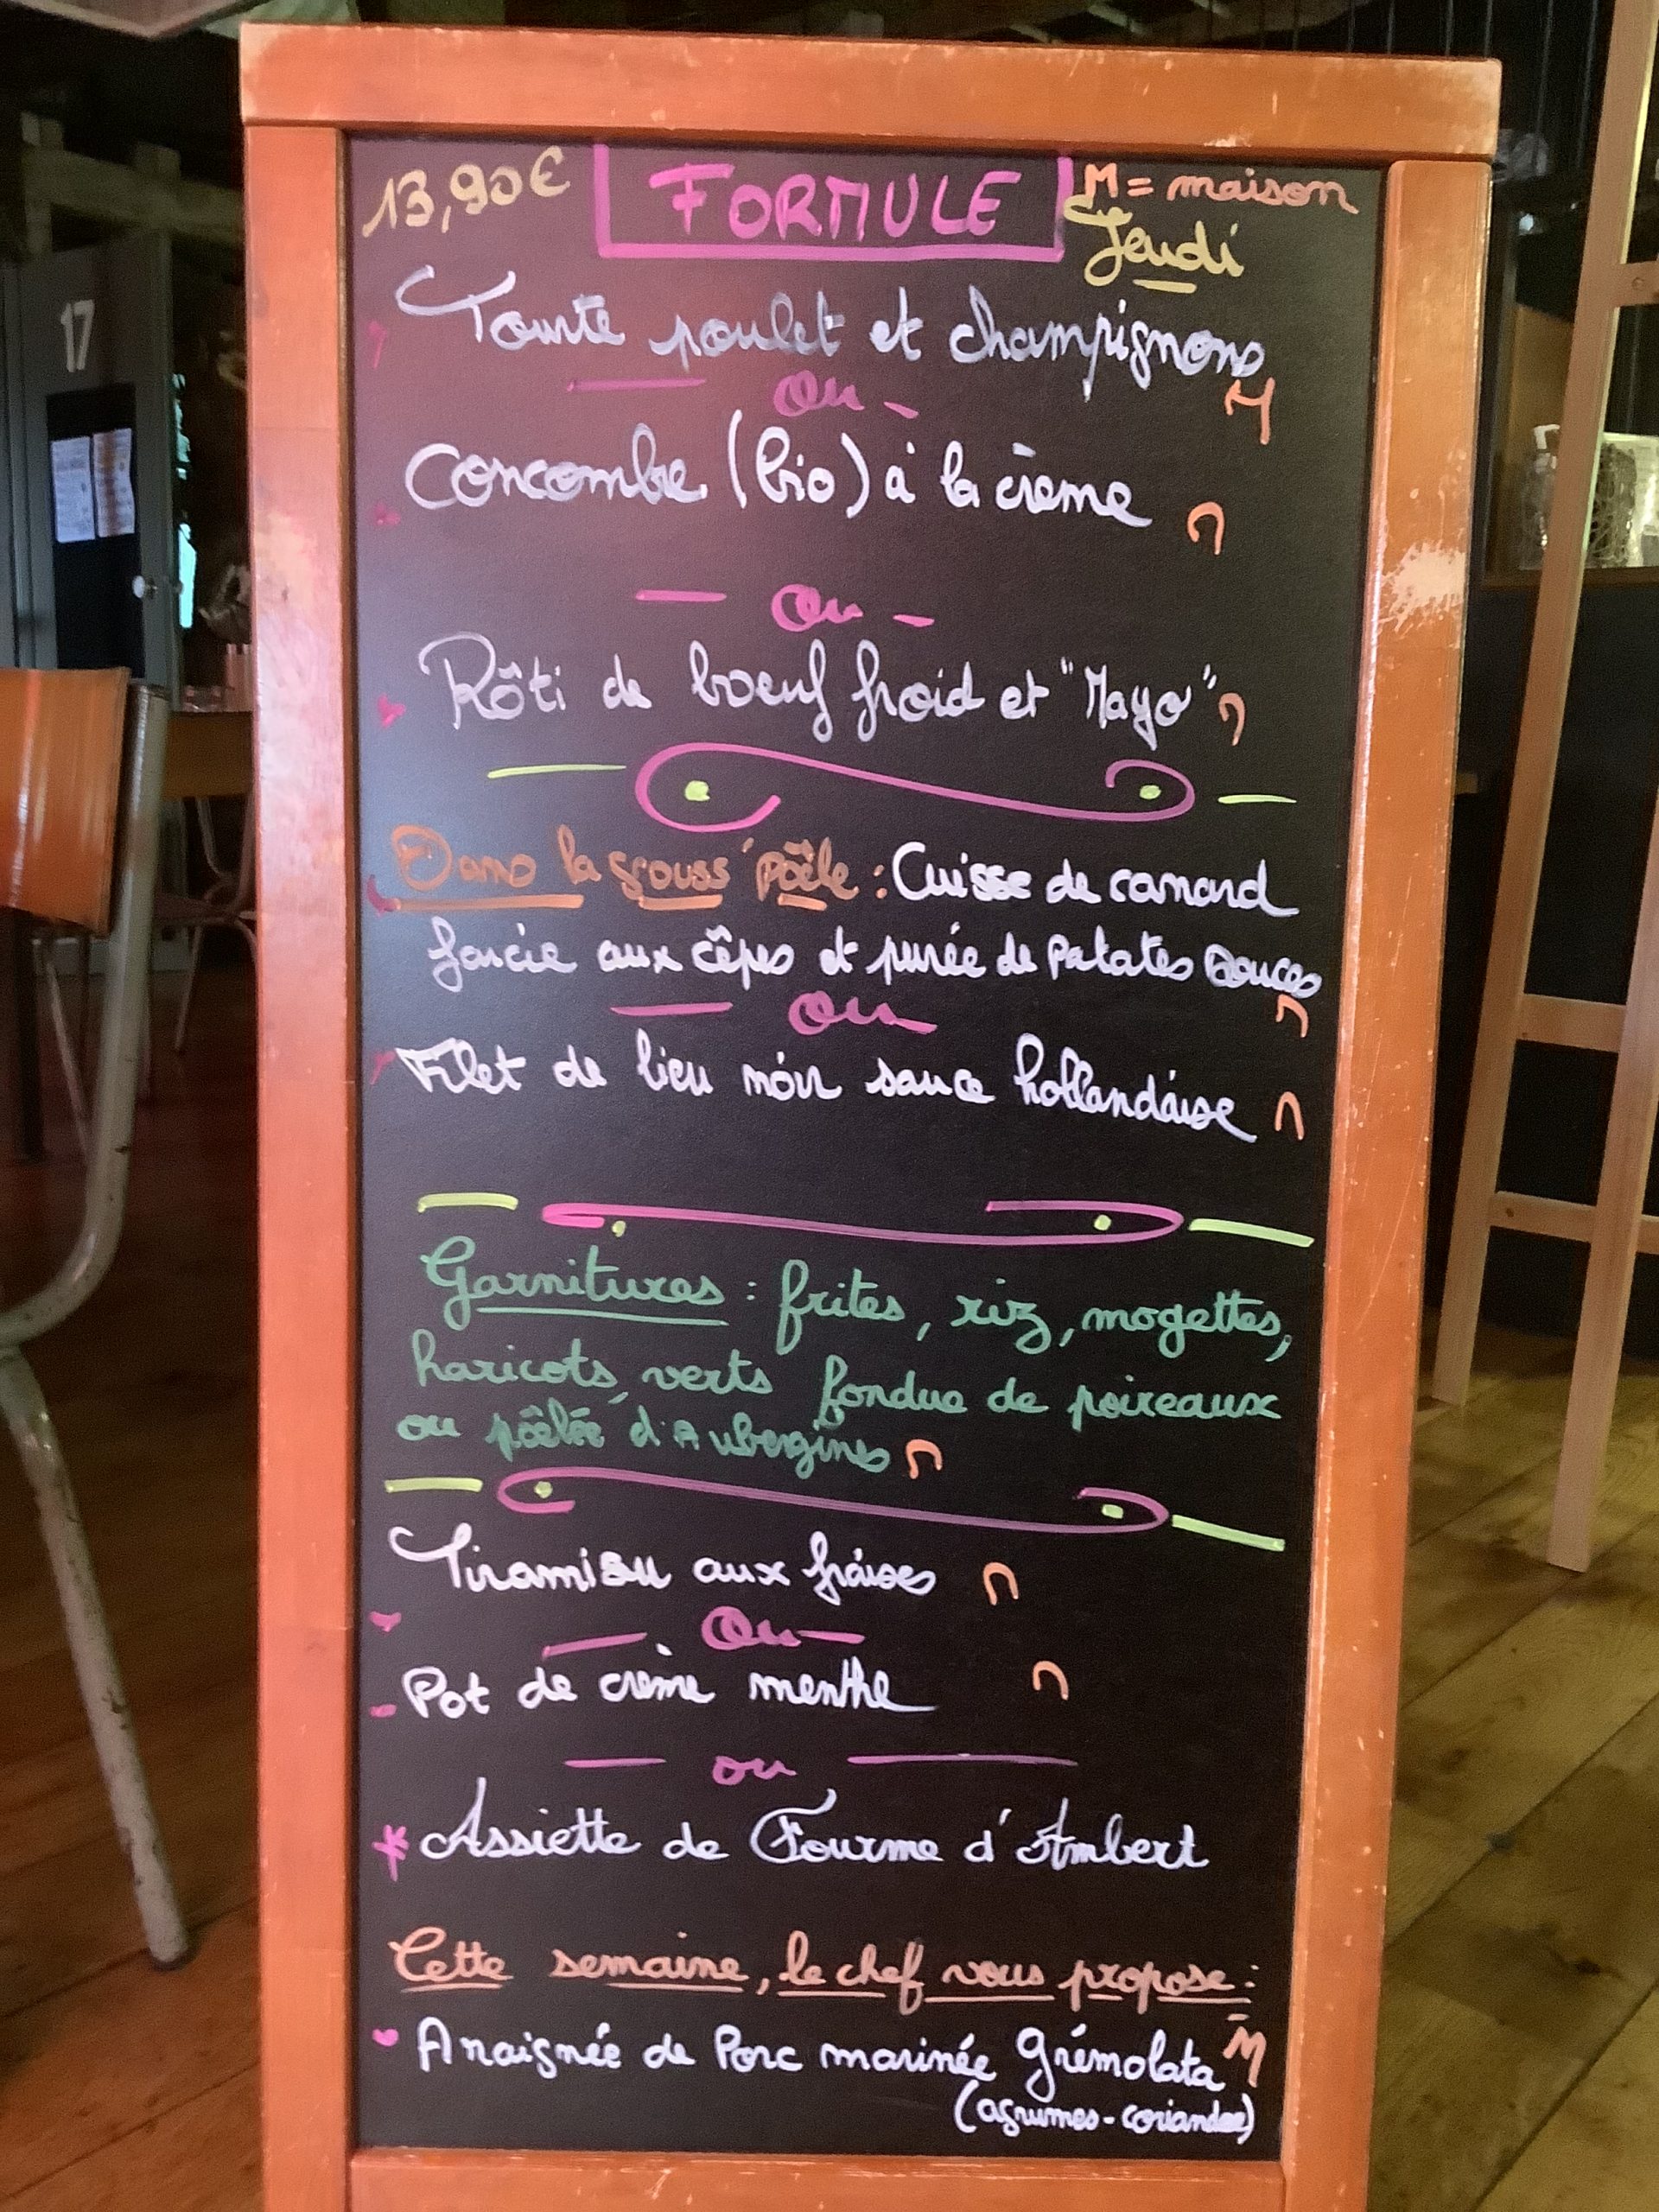 13,90€ FORMULE M = maison
Jeudi
Tourte poulet et champignons
ou M
Concombre (bio) à la crème M
ou
Rôti de boeuf froid et "Mayo" M
Dans la grouss' poêle : Cuisse de canard
farcie aux cêpes et purée de Patates Douces
ou M
Filet de lieu noir sauce hollandaise M
Garnitures : frites, riz, mogettes,
haricots verts fondue de poireaux
ou poêlée d'Aubergines M
Tiramisu aux fraises M
ou
Pot de crème menthe M
ou
* Assiette de Fourme d'Ambert
Cette semaine, le chef vous propose :
Araignée de Porc marinée Grémolata M
(agrumes-coriandre)
17